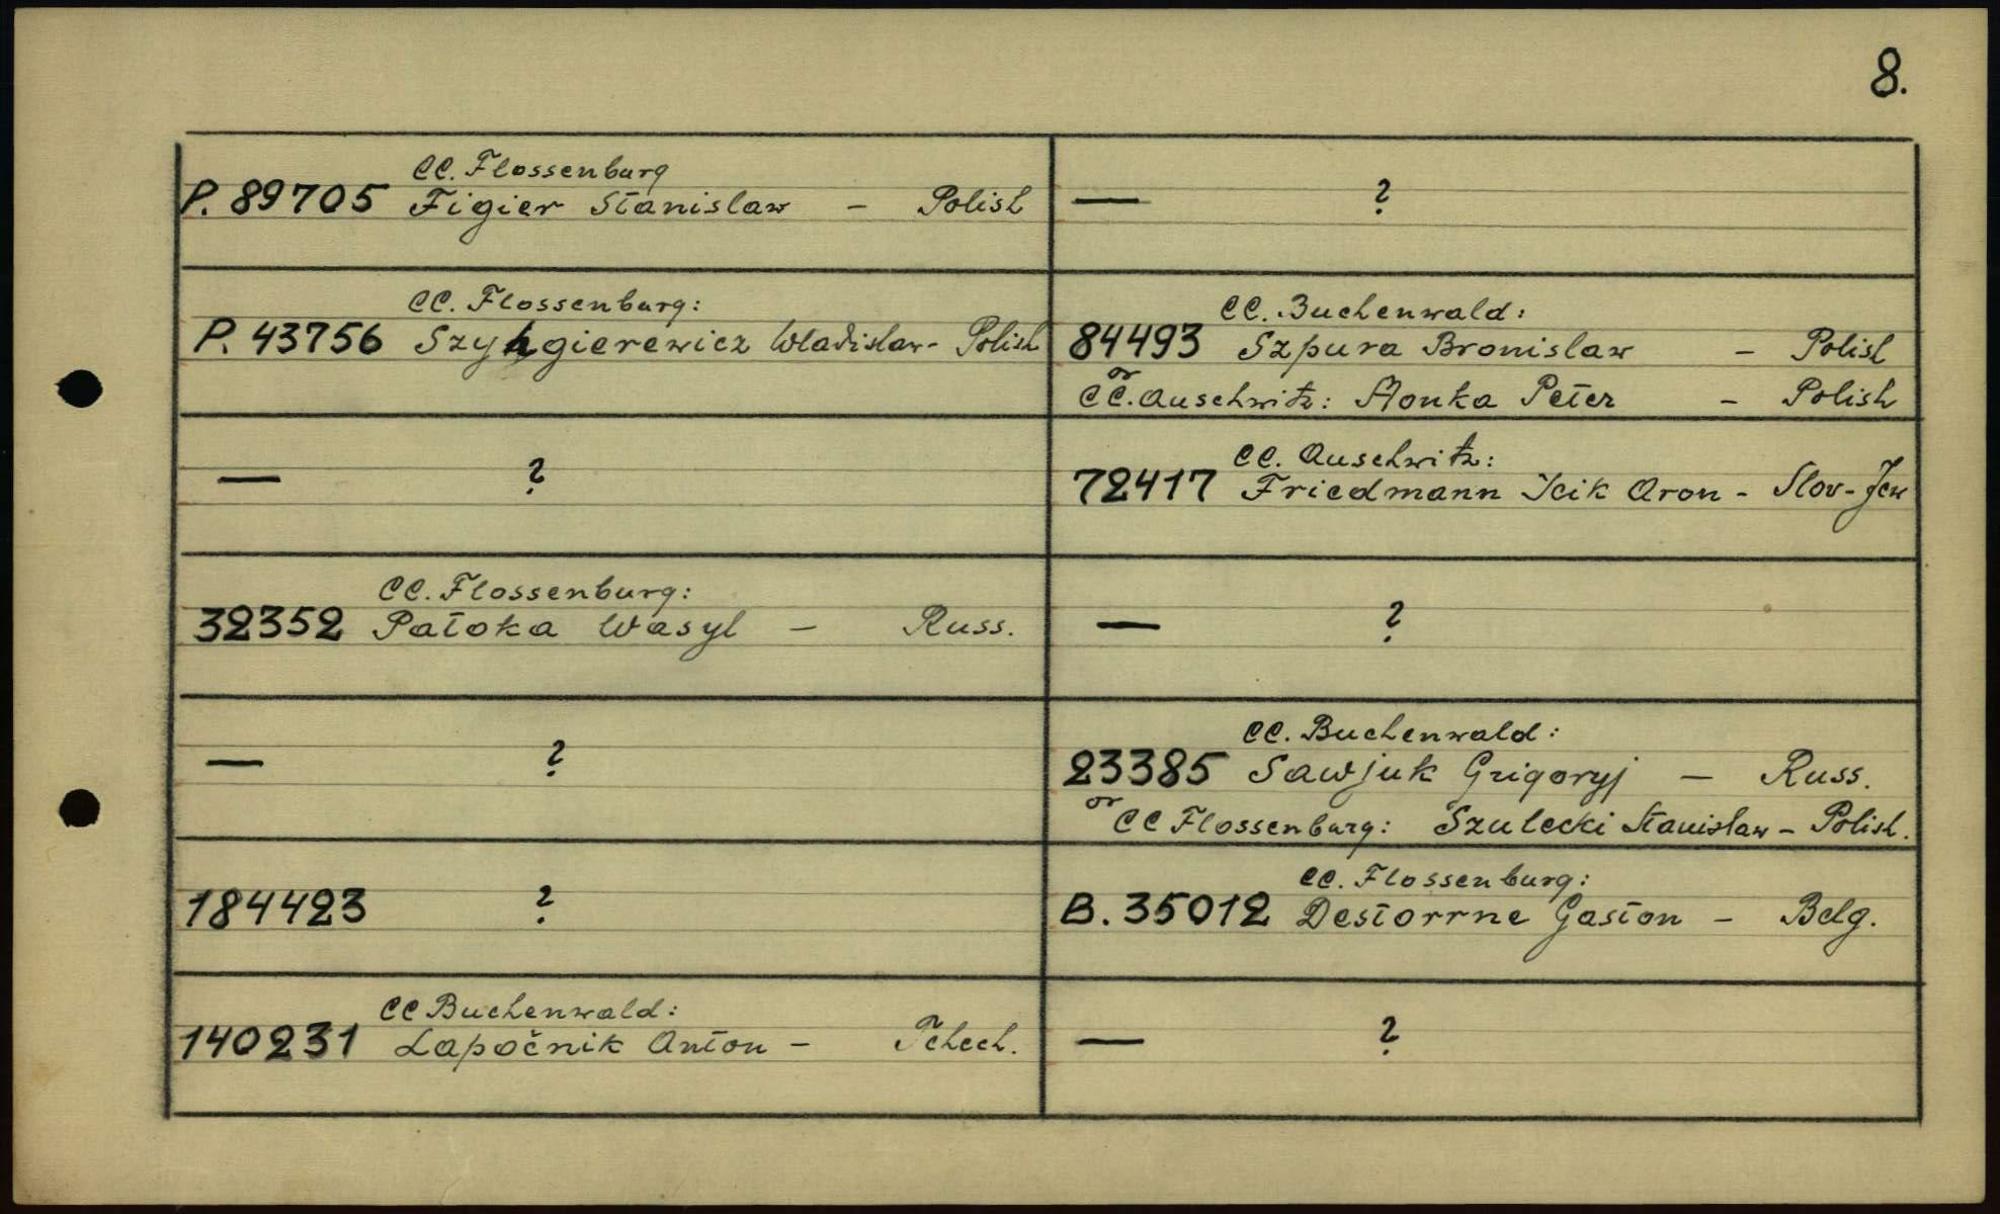 8.
CC. Flossenburg
P. 89705 Figier Stanislaw - Polish
— ?
CC. Flossenburg:
P. 43756 Szyngierewicz Wladislaw - Polish
CC. Buchenwald:
84493 Szpura Bronislaw - Polish
or
CC. Auschwitz: Honka Peter - Polish
— ?
CC. Auschwitz:
72417 Friedmann Icik Aron - Slov-Jew
CC. Flossenburg:
32352 Patoka Wasyl - Russ.
— ?
— ?
CC. Buchenwald:
23385 Sawjuk Grigoryj - Russ.
or
CC Flossenburg: Szulecki Stanislaw - Polish.
184423 ?
CC. Flossenburg:
B. 35012 Destorrne Gaston - Belg.
CC Buchenwald:
140231 Lapočnik Anton - Tchech.
— ?